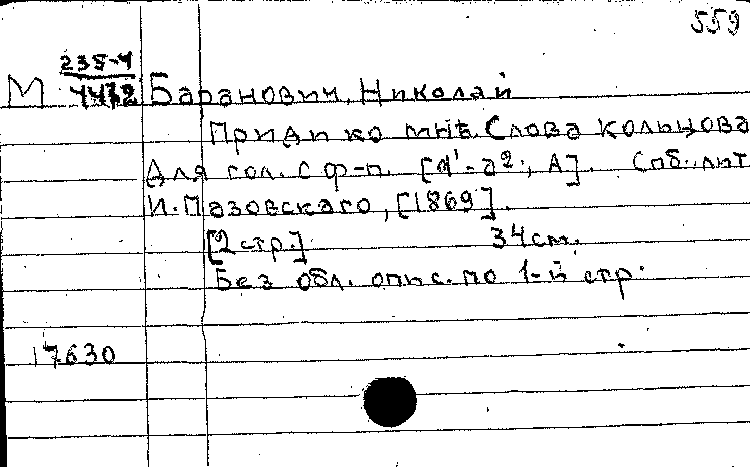 559
М 235-4
4472 Баранович, Николай
Приди ко мнѣ. Слова Кольцова
Для гол. с ф-п. [d'-a²; A]. Спб. лит.
И. Пазовскаго, [1869].
[2 стр.] 34 см.
Без обл. опис. по 1-й стр.
17630